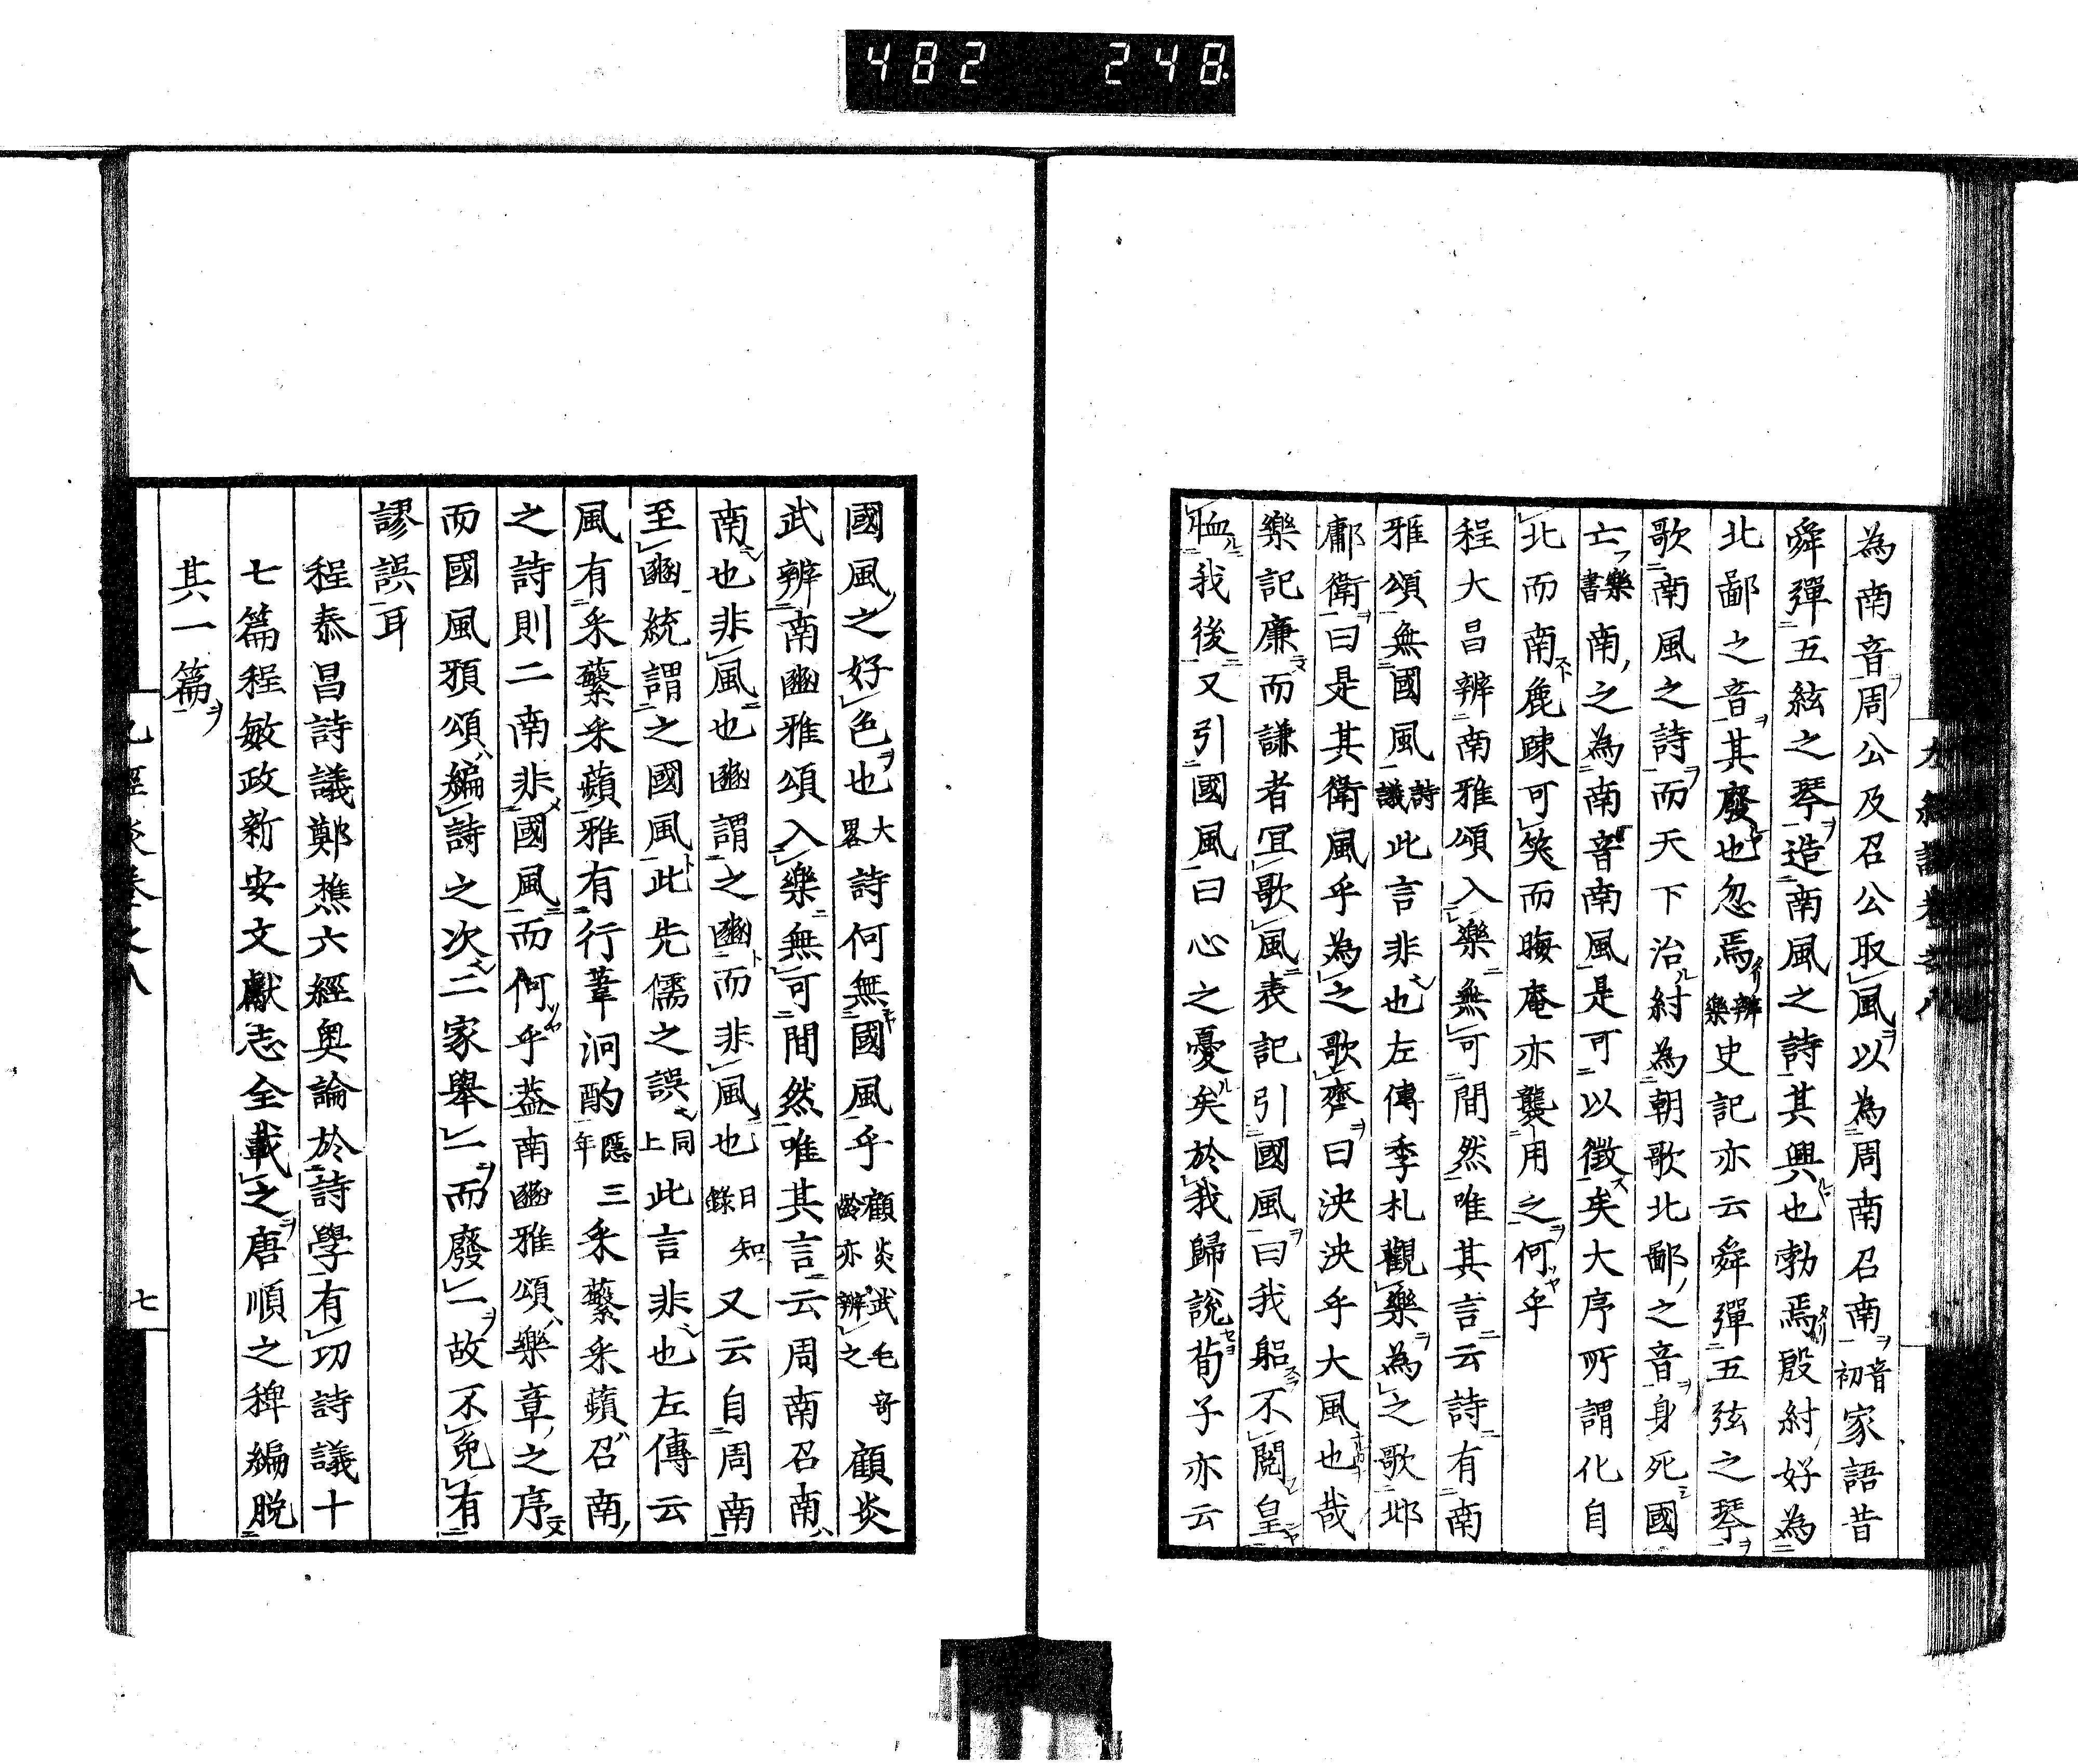 482 248
為南音周公及召公取風以為周南召南音初家語昔
舜彈五絃之琴造南風之詩其興也勃焉殷紂好為
北鄙之音其廢也忽焉辨樂史記亦云舜彈五弦之琴
歌南風之詩而天下治紂為朝歌北鄙之音身死國
亡樂書南之為南音南風是可以徵矣大序所謂化自
北而南鹿踈可笑而晦庵亦襲用之何乎
程大昌辨南雅頌入樂無可間然唯其言云詩有南
雅頌無國風詩議此言非也左傳季札觀樂為之歌邶
鄘衛曰是其衛風乎為之歌齊曰泱泱乎大風也哉
樂記廉而謙者宜歌風表記引國風曰我躬不閱皇
恤我後又引國風曰心之憂矣於我歸說荀子亦云
國風之好色也大畧詩何無國風乎顧炎武毛奇齡亦辨之顧炎
武辨南豳雅頌入樂無可間然唯其言云周南召南
南也非風也豳謂之豳而非風也日知錄又云自周南
至豳統謂之國風此先儒之誤同上此言非也左傳云
風有采蘩采蘋雅有行葦泂酌隱三年采蘩采蘋召南
之詩則二南非國風而何乎蓋南豳雅頌樂章之序
而國風雅頌編詩之次二家舉一而廢一故不免有
謬誤耳
程泰昌詩議鄭樵六經奧論於詩學有功詩議十
七篇程敏政新安文獻志全載之唐順之稗編脫
其一篇
七